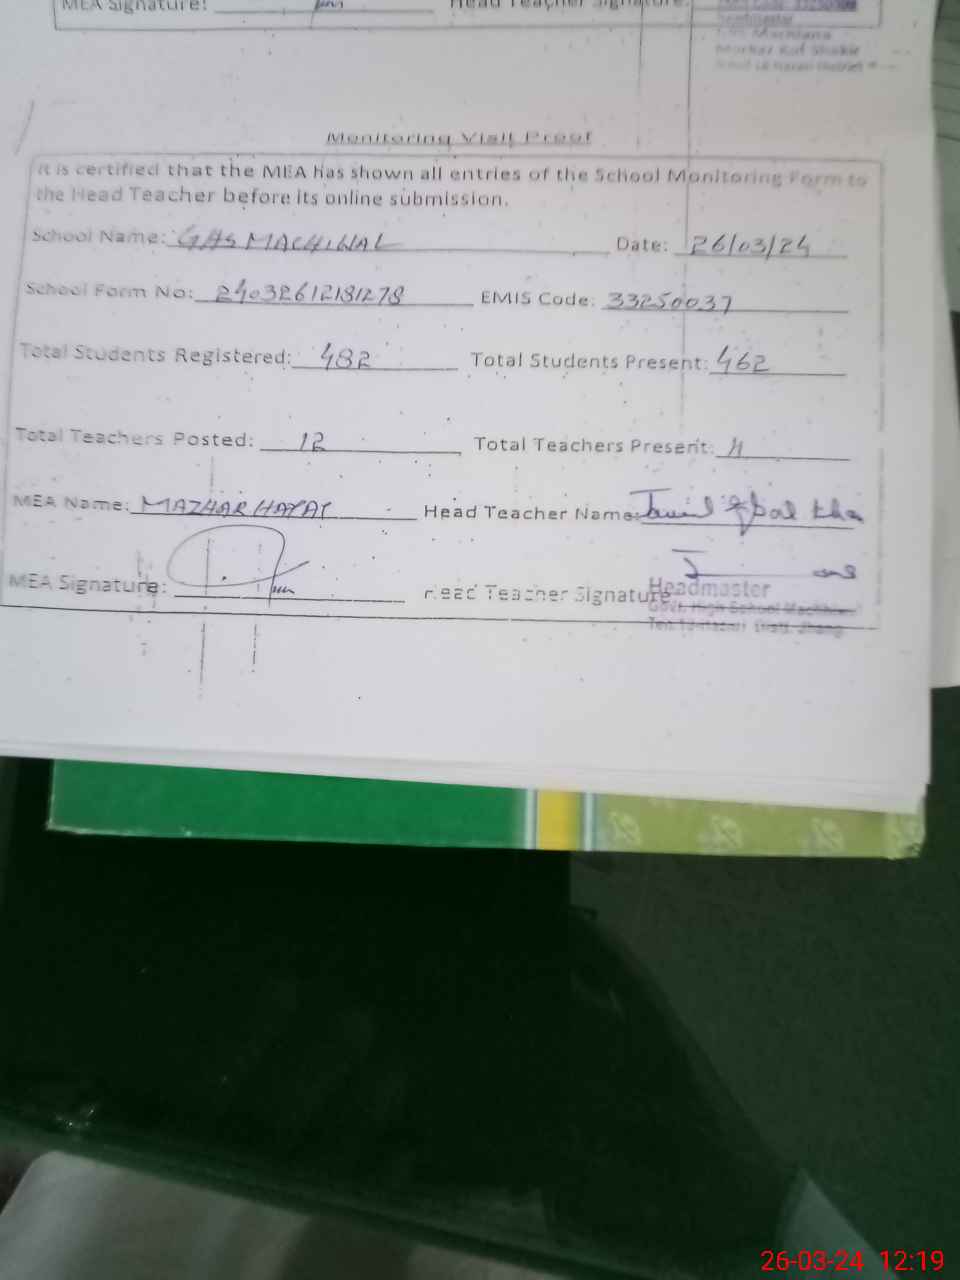 MEA Signature: Head Teacher Signature:
Headmaster
Monitoring Visit Proof
It is certified that the MEA has shown all entries of the School Monitoring Form to
the Head Teacher before its online submission.
School Name: GHS MACHIWAL Date: 26/03/24
School Form No: 24032612181278 EMIS Code: 33250037
Total Students Registered: 482 Total Students Present: 462
Total Teachers Posted: 12 Total Teachers Present: 11
MEA Name: MAZHAR HAYAT Head Teacher Name: Iqbal Kha
MEA Signature: Head Teacher Signature
Headmaster
Govt. High School
Distt. Jhang
26-03-24 12:19